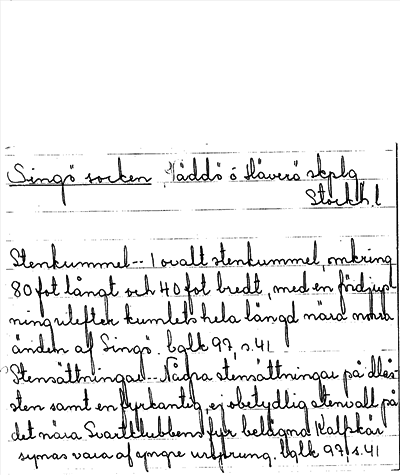 Singö socken, Väddö o Häverö skplg
Stockh. l
Stenkummel -- 1 ovalt stenkummel, omkring
80 fot långt och 40 fot bredt, med en fördjup-
ning utefter kumlets hela längd nära norra
änden af Singö. bglk 97, s. 41
Stensättningar -- Några stensättningar på
sten samt en fyrkantig, ej obetydlig stenvall på
det nära Svartklubbens fyr belägna Kalfskär
synas vara af yngre ursprung. bglk 97, s. 41